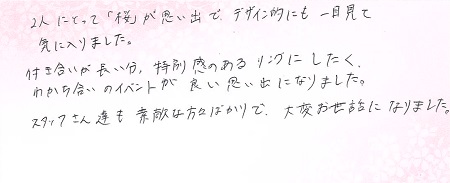 2人にとって「桜」が思い出で、デザイン的にも一目見て
気に入りました。
付き合いが長い分、特別感のあるリングにしたく、
わかち合いのイベントが良い思い出になりました。
スタッフさん達も素敵な方々ばかりで、大変お世話になりました。